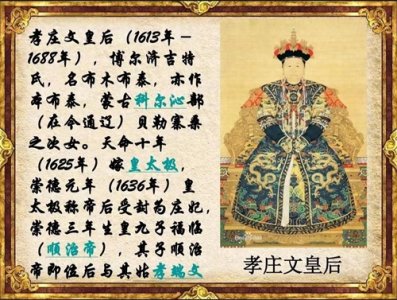 孝庄文皇后（1613年－
1688年），博尔济吉特
氏，名布木布泰，亦作
本布泰，蒙古科尔沁部
（在今通辽）贝勒寨桑
之次女。天命十年
（1625年）嫁皇太极，
崇德元年（1636年）皇
太极称帝后受封为庄妃，
崇德三年生皇九子福临
（顺治帝），其子顺治
帝即位后与其姑孝端文
孝庄文皇后